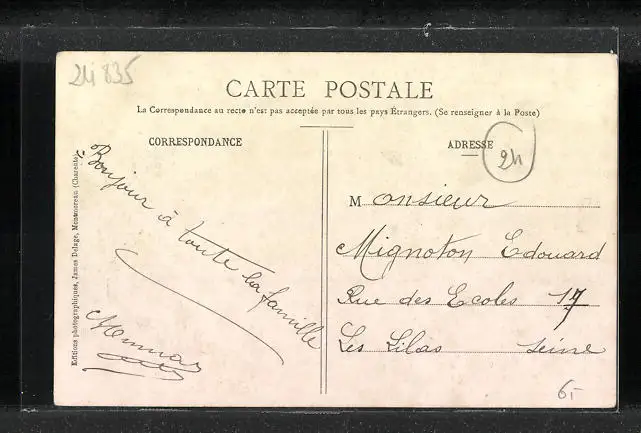 24 835
CARTE POSTALE
La Correspondance au recto n'est pas acceptée par tous les pays Étrangers. (Se renseigner à la Poste)
CORRESPONDANCE
ADRESSE
24
Editions photographiques, James Delage, Montmoreau (Charente)
Bonjour à toute la famille
Monsieur
Mignoton Edouard
Rue des Ecoles 17
Les Lilas Seine
6-